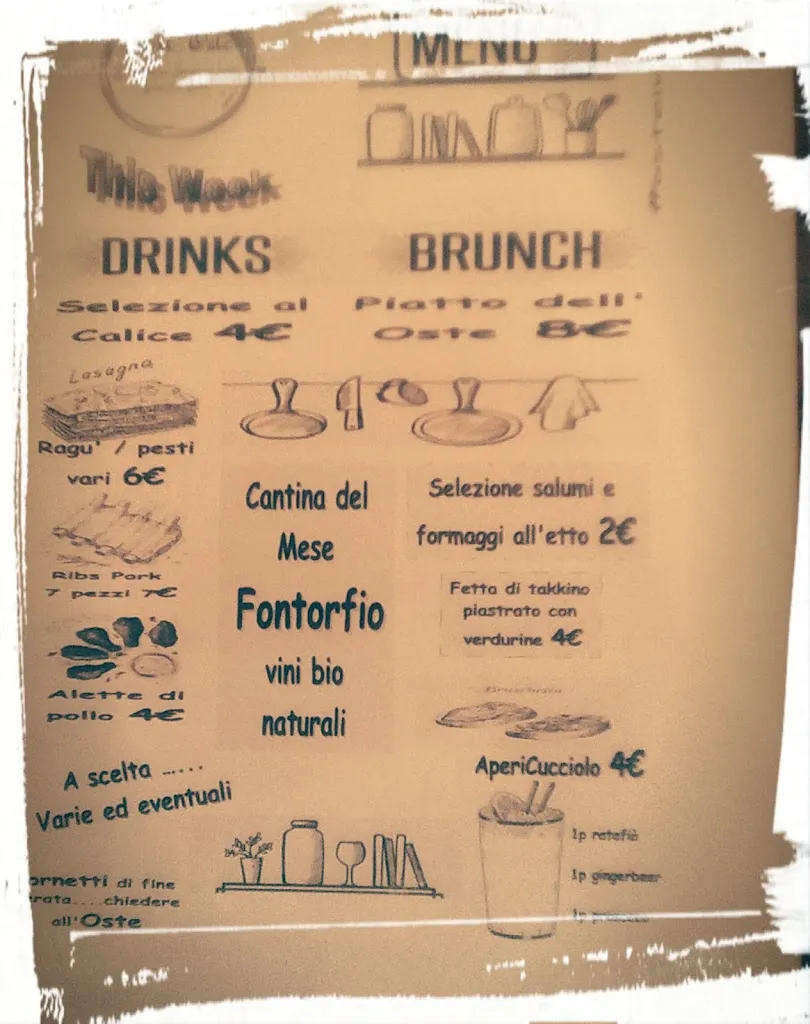 MENU
This Week
DRINKS
Selezione al
Calice 4€
BRUNCH
Piatto dell'
Oste 8€
Lasagna
Ragu' / pesti
vari 6€
Ribs Pork
7 pezzi 7€
Alette di
pollo 4€
A scelta ......
Varie ed eventuali
ornetti di fine
rata....chiedere
all'Oste
Cantina del
Mese
Fontorfio
vini bio
naturali
Selezione salumi e
formaggi all'etto 2€
Fetta di takkino
piastrato con
verdurine 4€
Bruschetta
AperiCucciolo 4€
1p ratafià
1p gingerbeer
1p